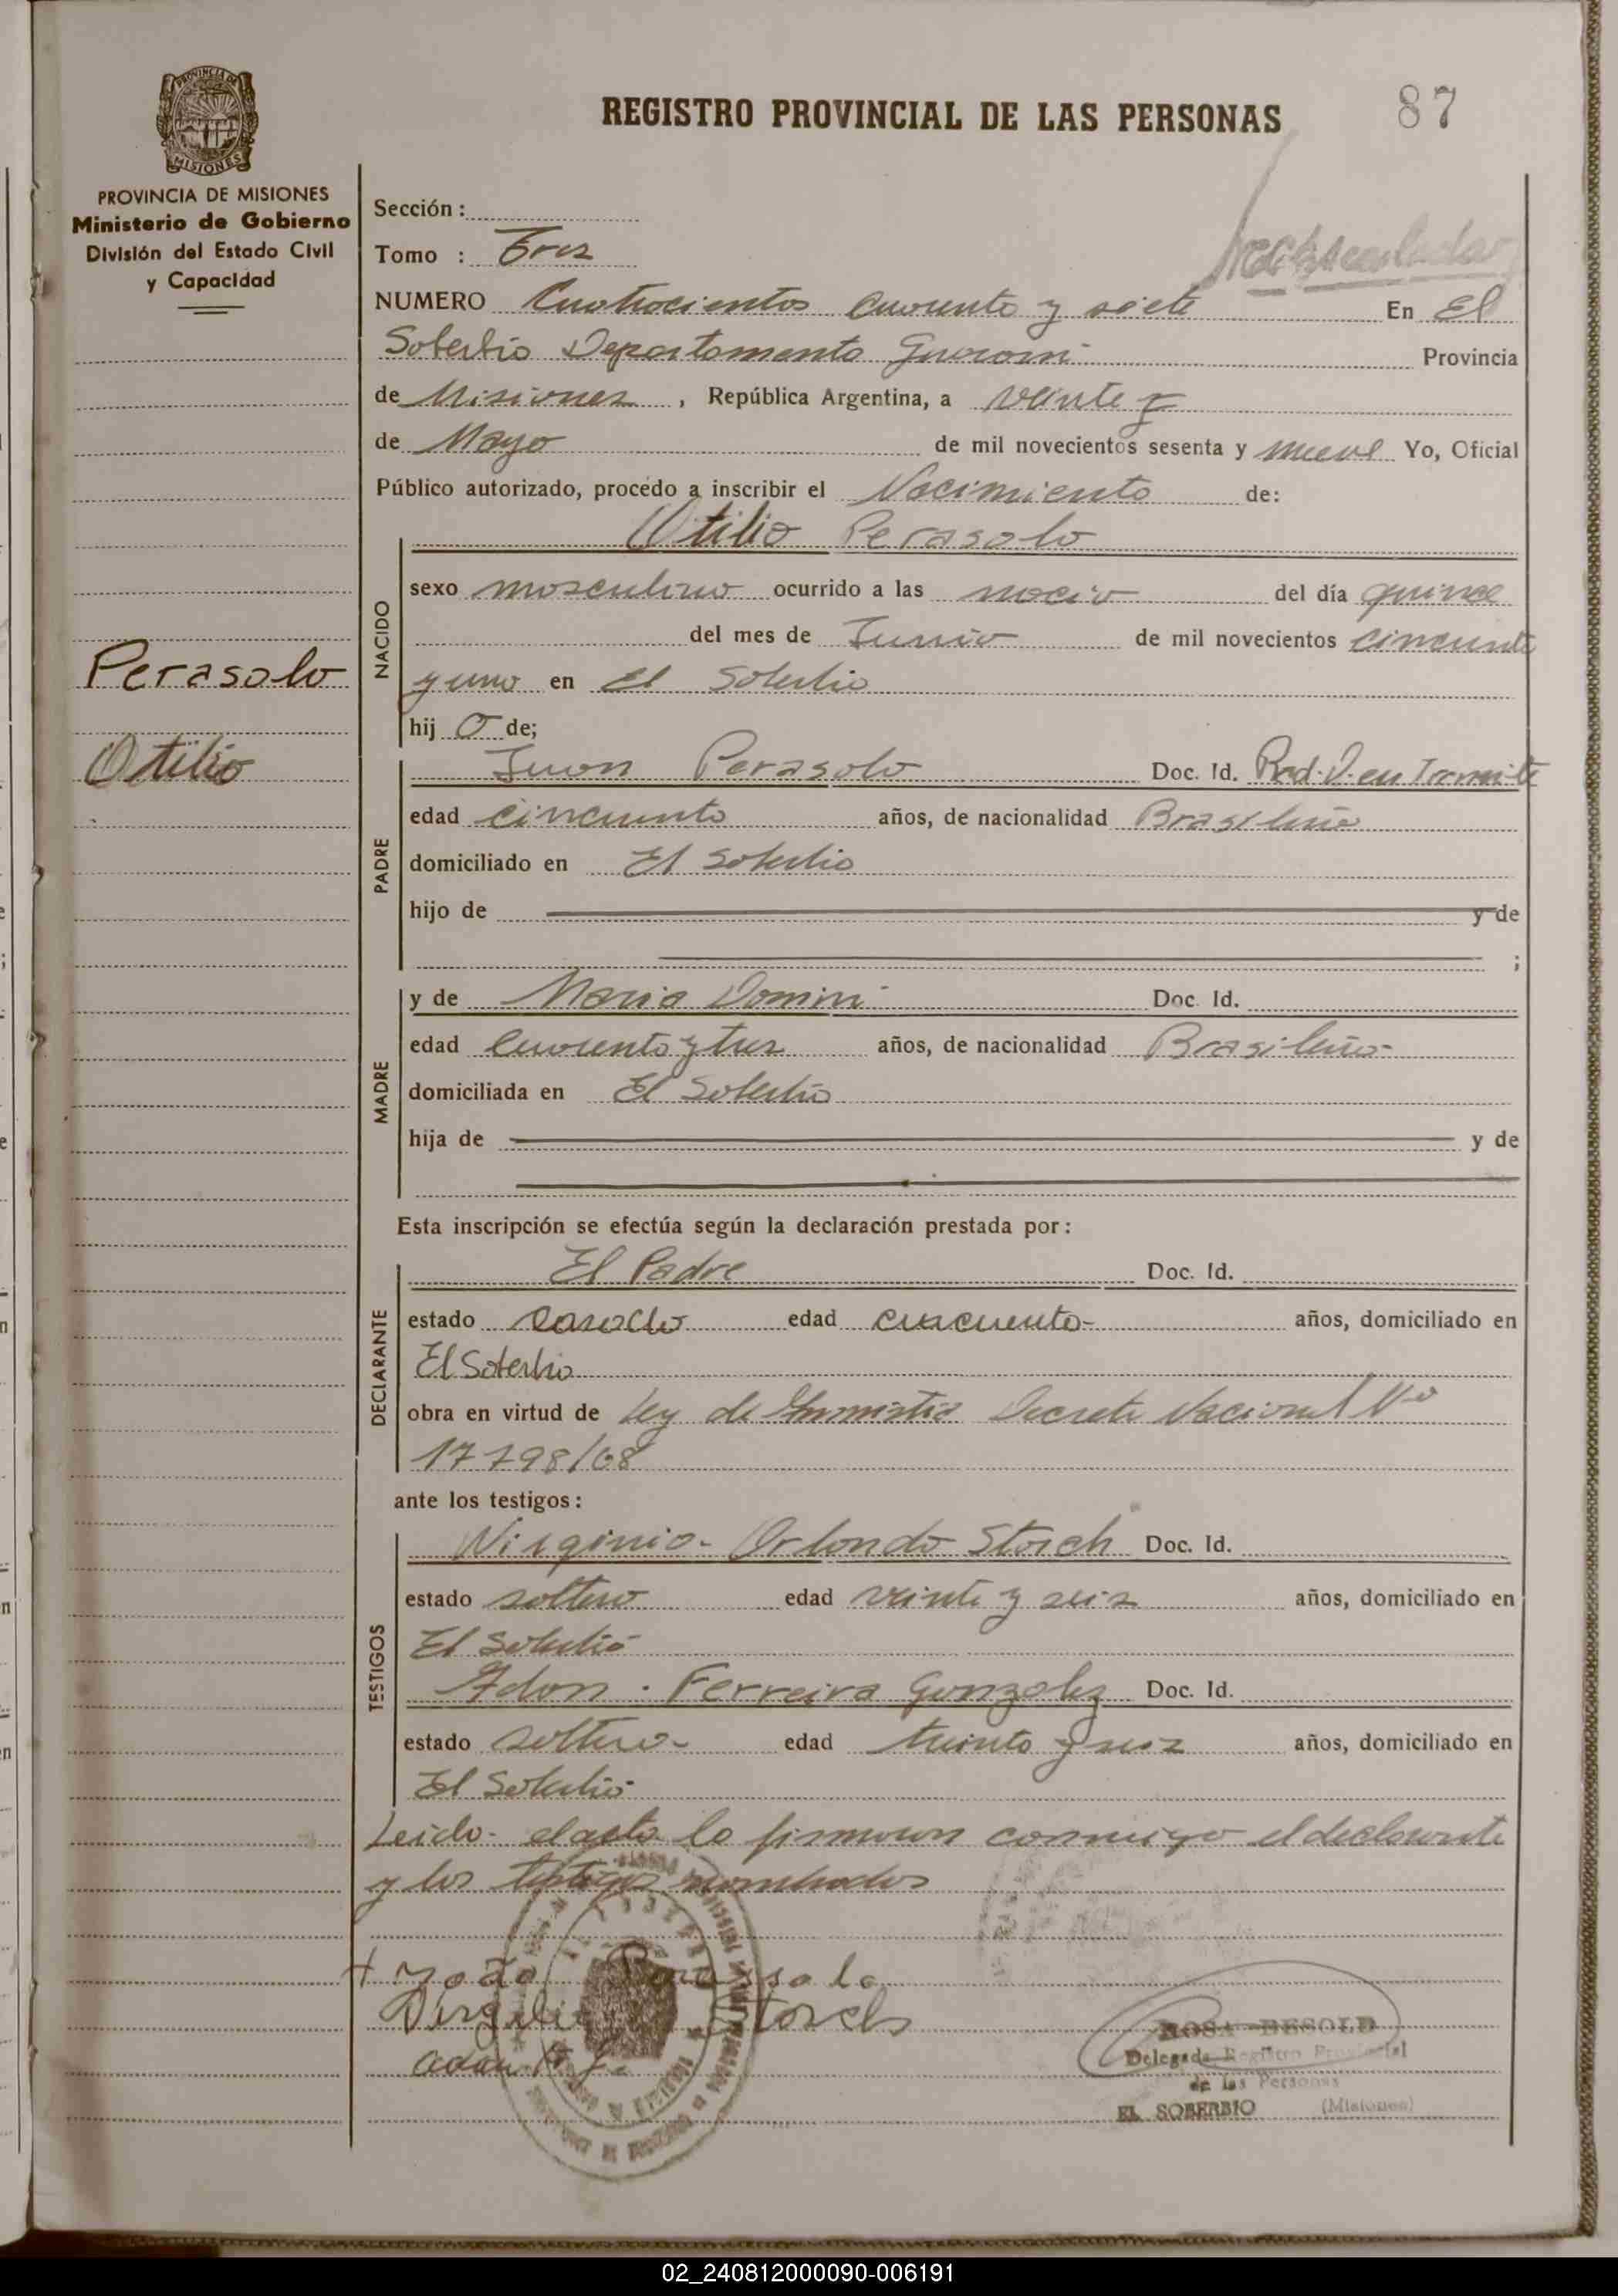 REGISTRO PROVINCIAL DE LAS PERSONAS
87
PROVINCIA DE MISIONES
PROVINCIA DE MISIONES
Ministerio de Gobierno
División del Estado Civil
y Capacidad
Perasolo
Otilio
Sección :
Tomo : Tres
NUMERO Cuatrocientos cuarenta y siete En El
Soberbio Departamento Guarani Provincia
de Misiones , República Argentina, a veinte
de Mayo de mil novecientos sesenta y nueve Yo, Oficial
Público autorizado, procedo a inscribir el Nacimiento de:
NACIDO
Otilio Perasolo
sexo masculino ocurrido a las del día quince
del mes de Junio de mil novecientos cincuenta
y uno en El Soberbio
hij o de;
PADRE
Juan Perasolo Doc. Id. en Tramite
edad cincuenta años, de nacionalidad Brasileña
domiciliado en El Soberbio
hijo de y de
;
MADRE
y de Maria Domin Doc. Id.
edad cuarenta y tres años, de nacionalidad Brasileña
domiciliada en El Soberbio
hija de y de
Esta inscripción se efectúa según la declaración prestada por :
DECLARANTE
El Padre Doc. Id.
estado casado edad cincuenta años, domiciliado en
El Soberbio
obra en virtud de Ley de Amnistia Decreto Nacional Nº
17798/68
ante los testigos :
TESTIGOS
Virginio Orlando Storch Doc. Id.
estado soltero edad veinte y seis años, domiciliado en
El Soberbio
Adan Ferreira Gonzalez Doc. Id.
estado soltero edad treinta y seis años, domiciliado en
El Soberbio
Leida el acta la firmaron conmigo el declarante
y los testigos nombrados
+ João Perassolo
Virgilio Storch
Adan F. G.
ROSA BESOLD
Delegada Registro Provincial
de las Personas
EL SOBERBIO (Misiones)
02_240812000090-006191